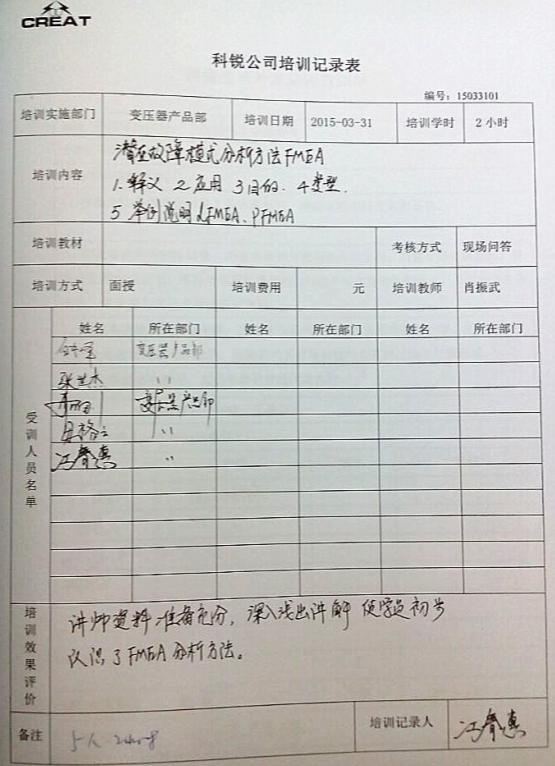 CREAT
科锐公司培训记录表
编号：15033101
培训实施部门 变压器产品部 培训日期 2015-03-31 培训学时 2小时
培训内容
潜在故障模式分析方法FMEA
1.释义 2应用 3目的. 4类型.
5 举例说明 dFMEA、PFMEA
培训教材 考核方式 现场问答
培训方式 面授 培训费用 元 培训教师 肖振武
受训人员名单
姓名 所在部门 姓名 所在部门 姓名 所在部门
变压器产品部
张世杰 〃
变压器产品部
〃
冯春惠 〃
培训效果评价
讲师资料准备充分，深入浅出讲解 使学员初步
认识了FMEA分析方法。
备注 5人 培训记录人 冯春惠